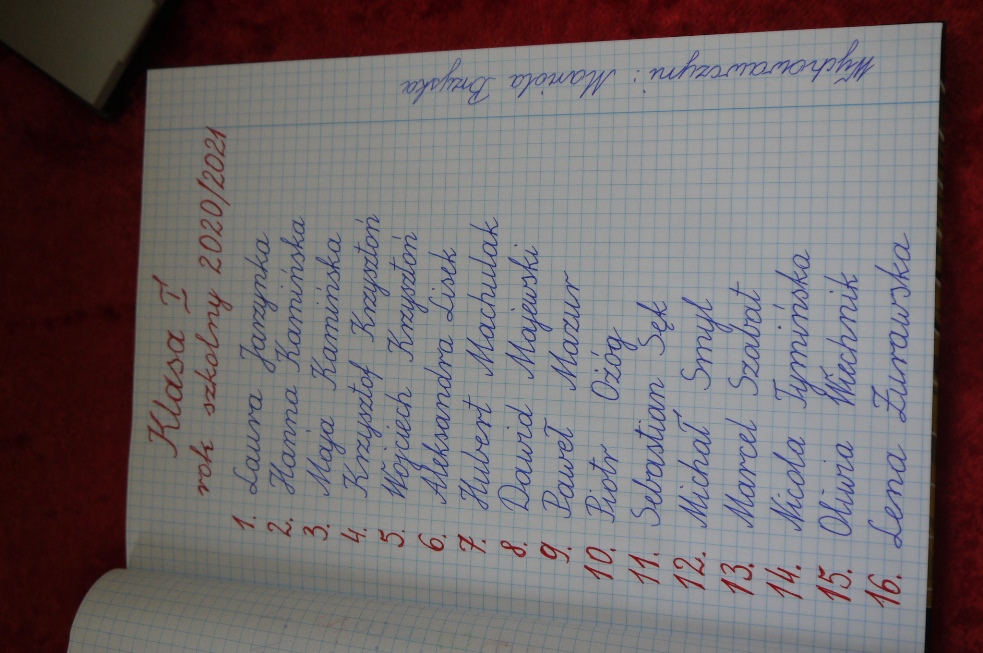 Klasa I
rok szkolny 2020/2021
1. Laura Jarzynka
2. Hanna Kamińska
3. Maja Kamińska
4. Krzysztof Krzysztoń
5. Wojciech Krzysztoń
6. Aleksandra Lisek
7. Hubert Machulak
8. Dawid Majewski
9. Paweł Mazur
10. Piotr Ożóg
11. Sebastian Sęk
12. Michał Smyl
13. Marcel Szabat
14. Nicola Tymińska
15. Oliwia Wiechnik
16. Lena Żurawska
Wychowawczyni: Mariola Bryska